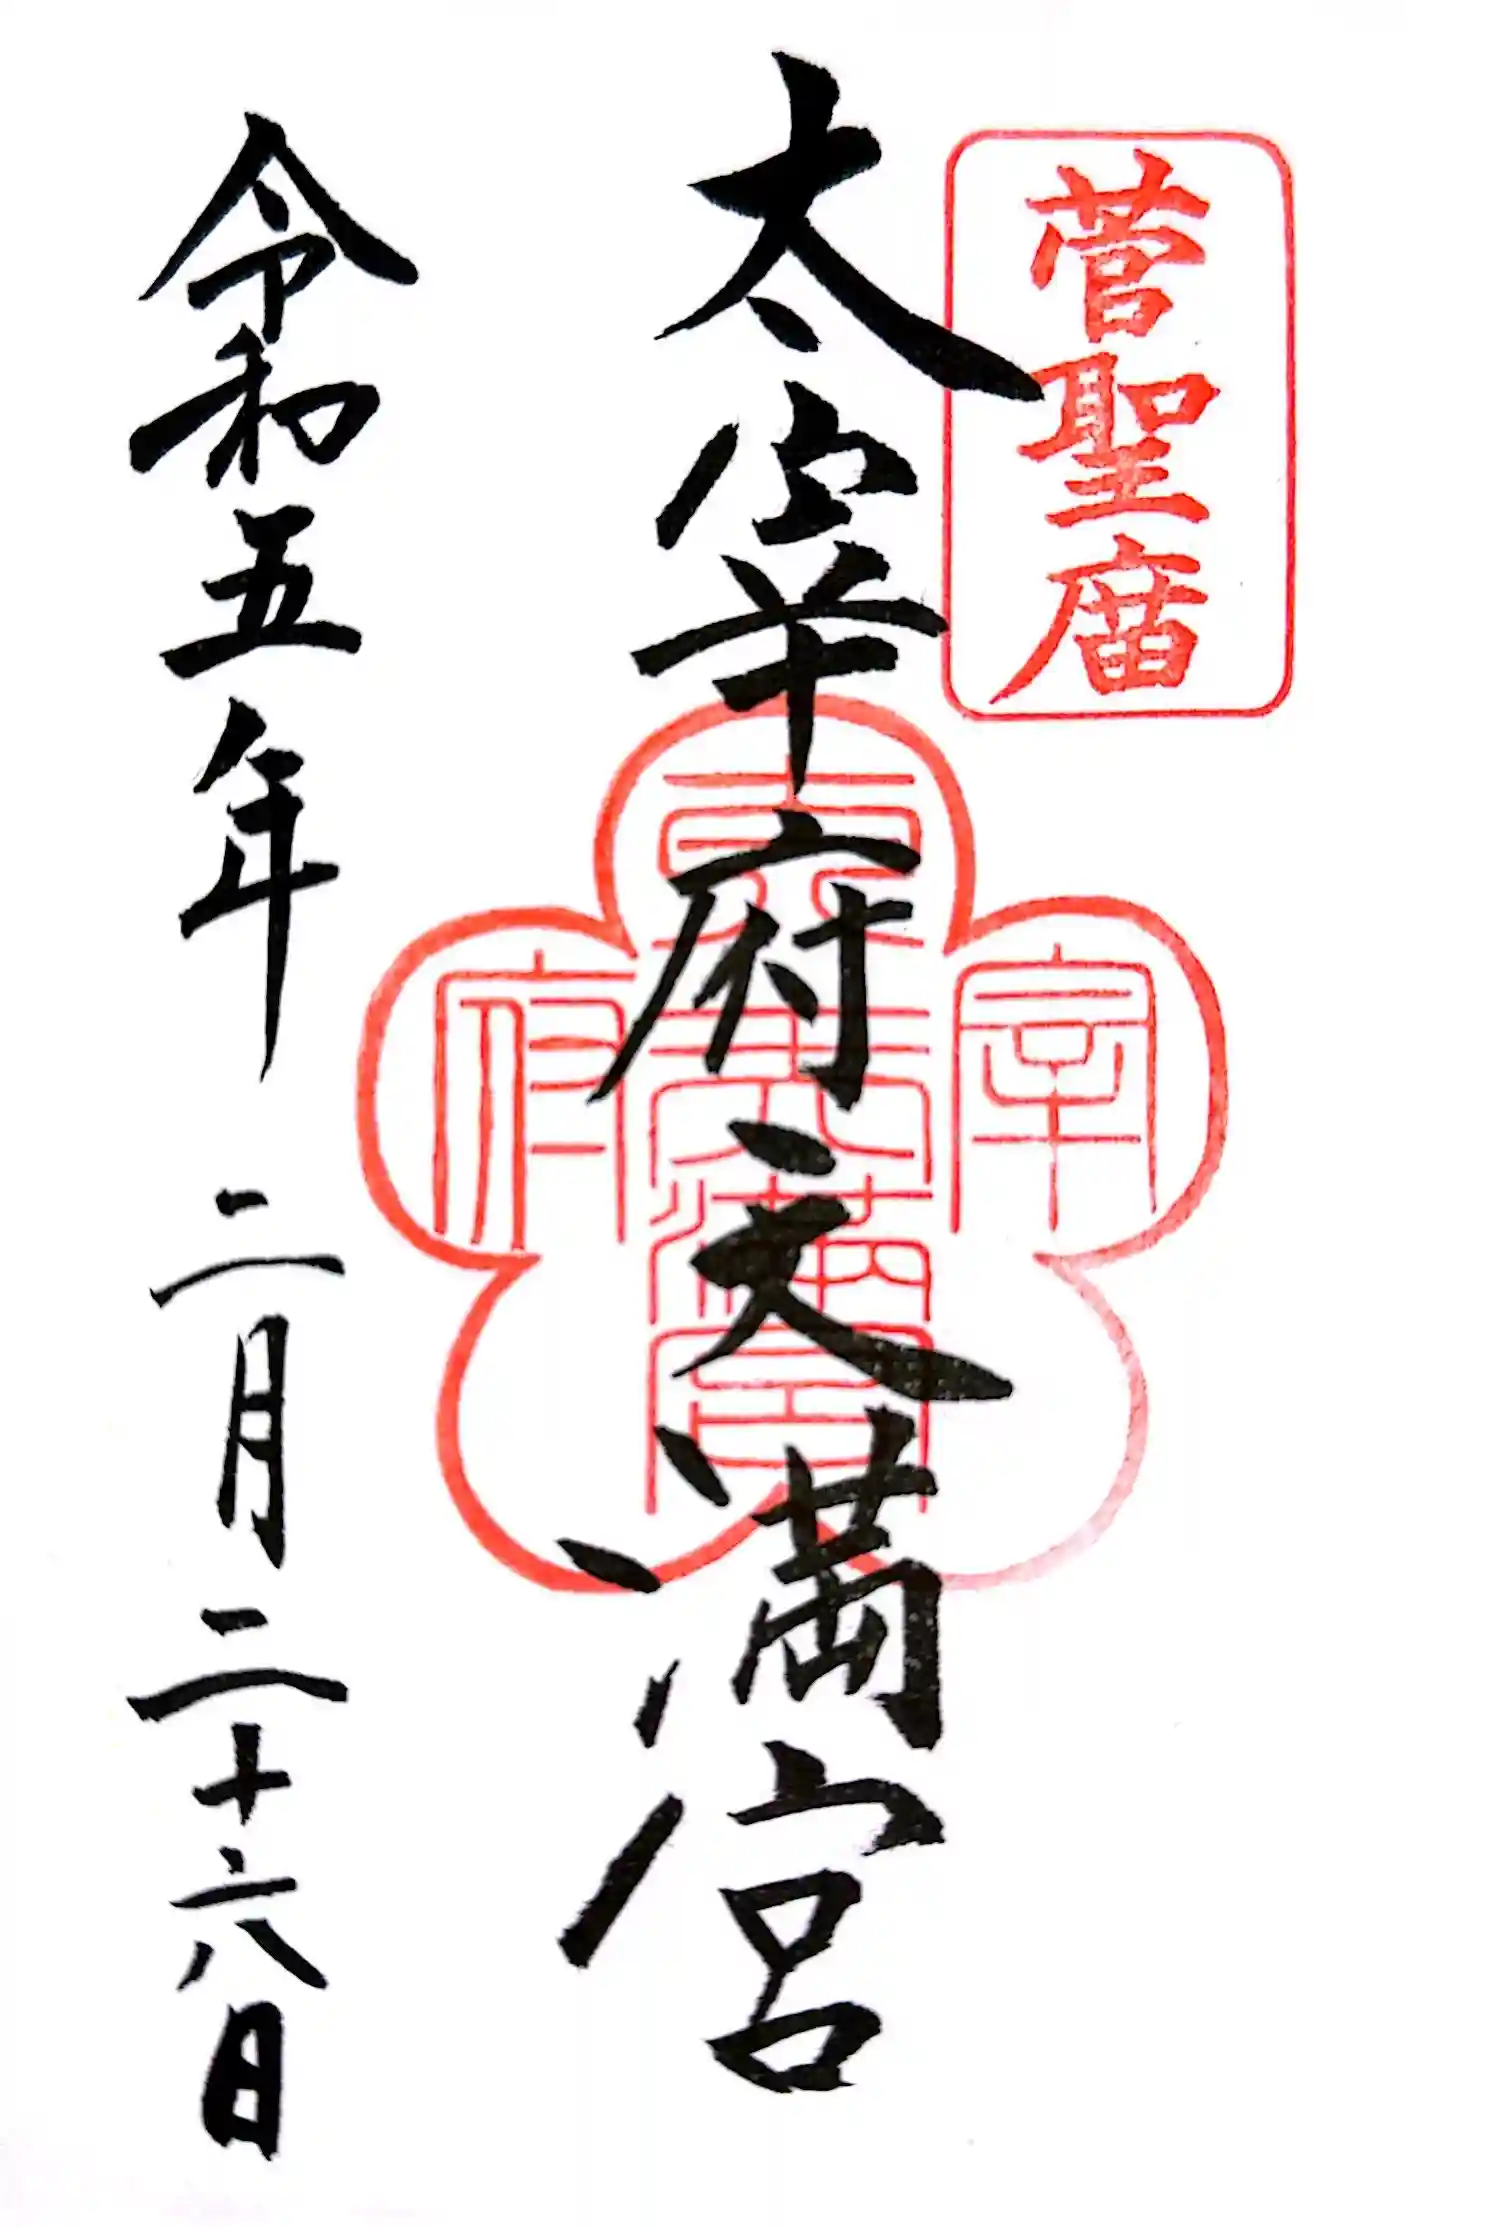 菅聖庿
太宰府天満宮
宰
府
天満宮
令和五年 二月二十六日